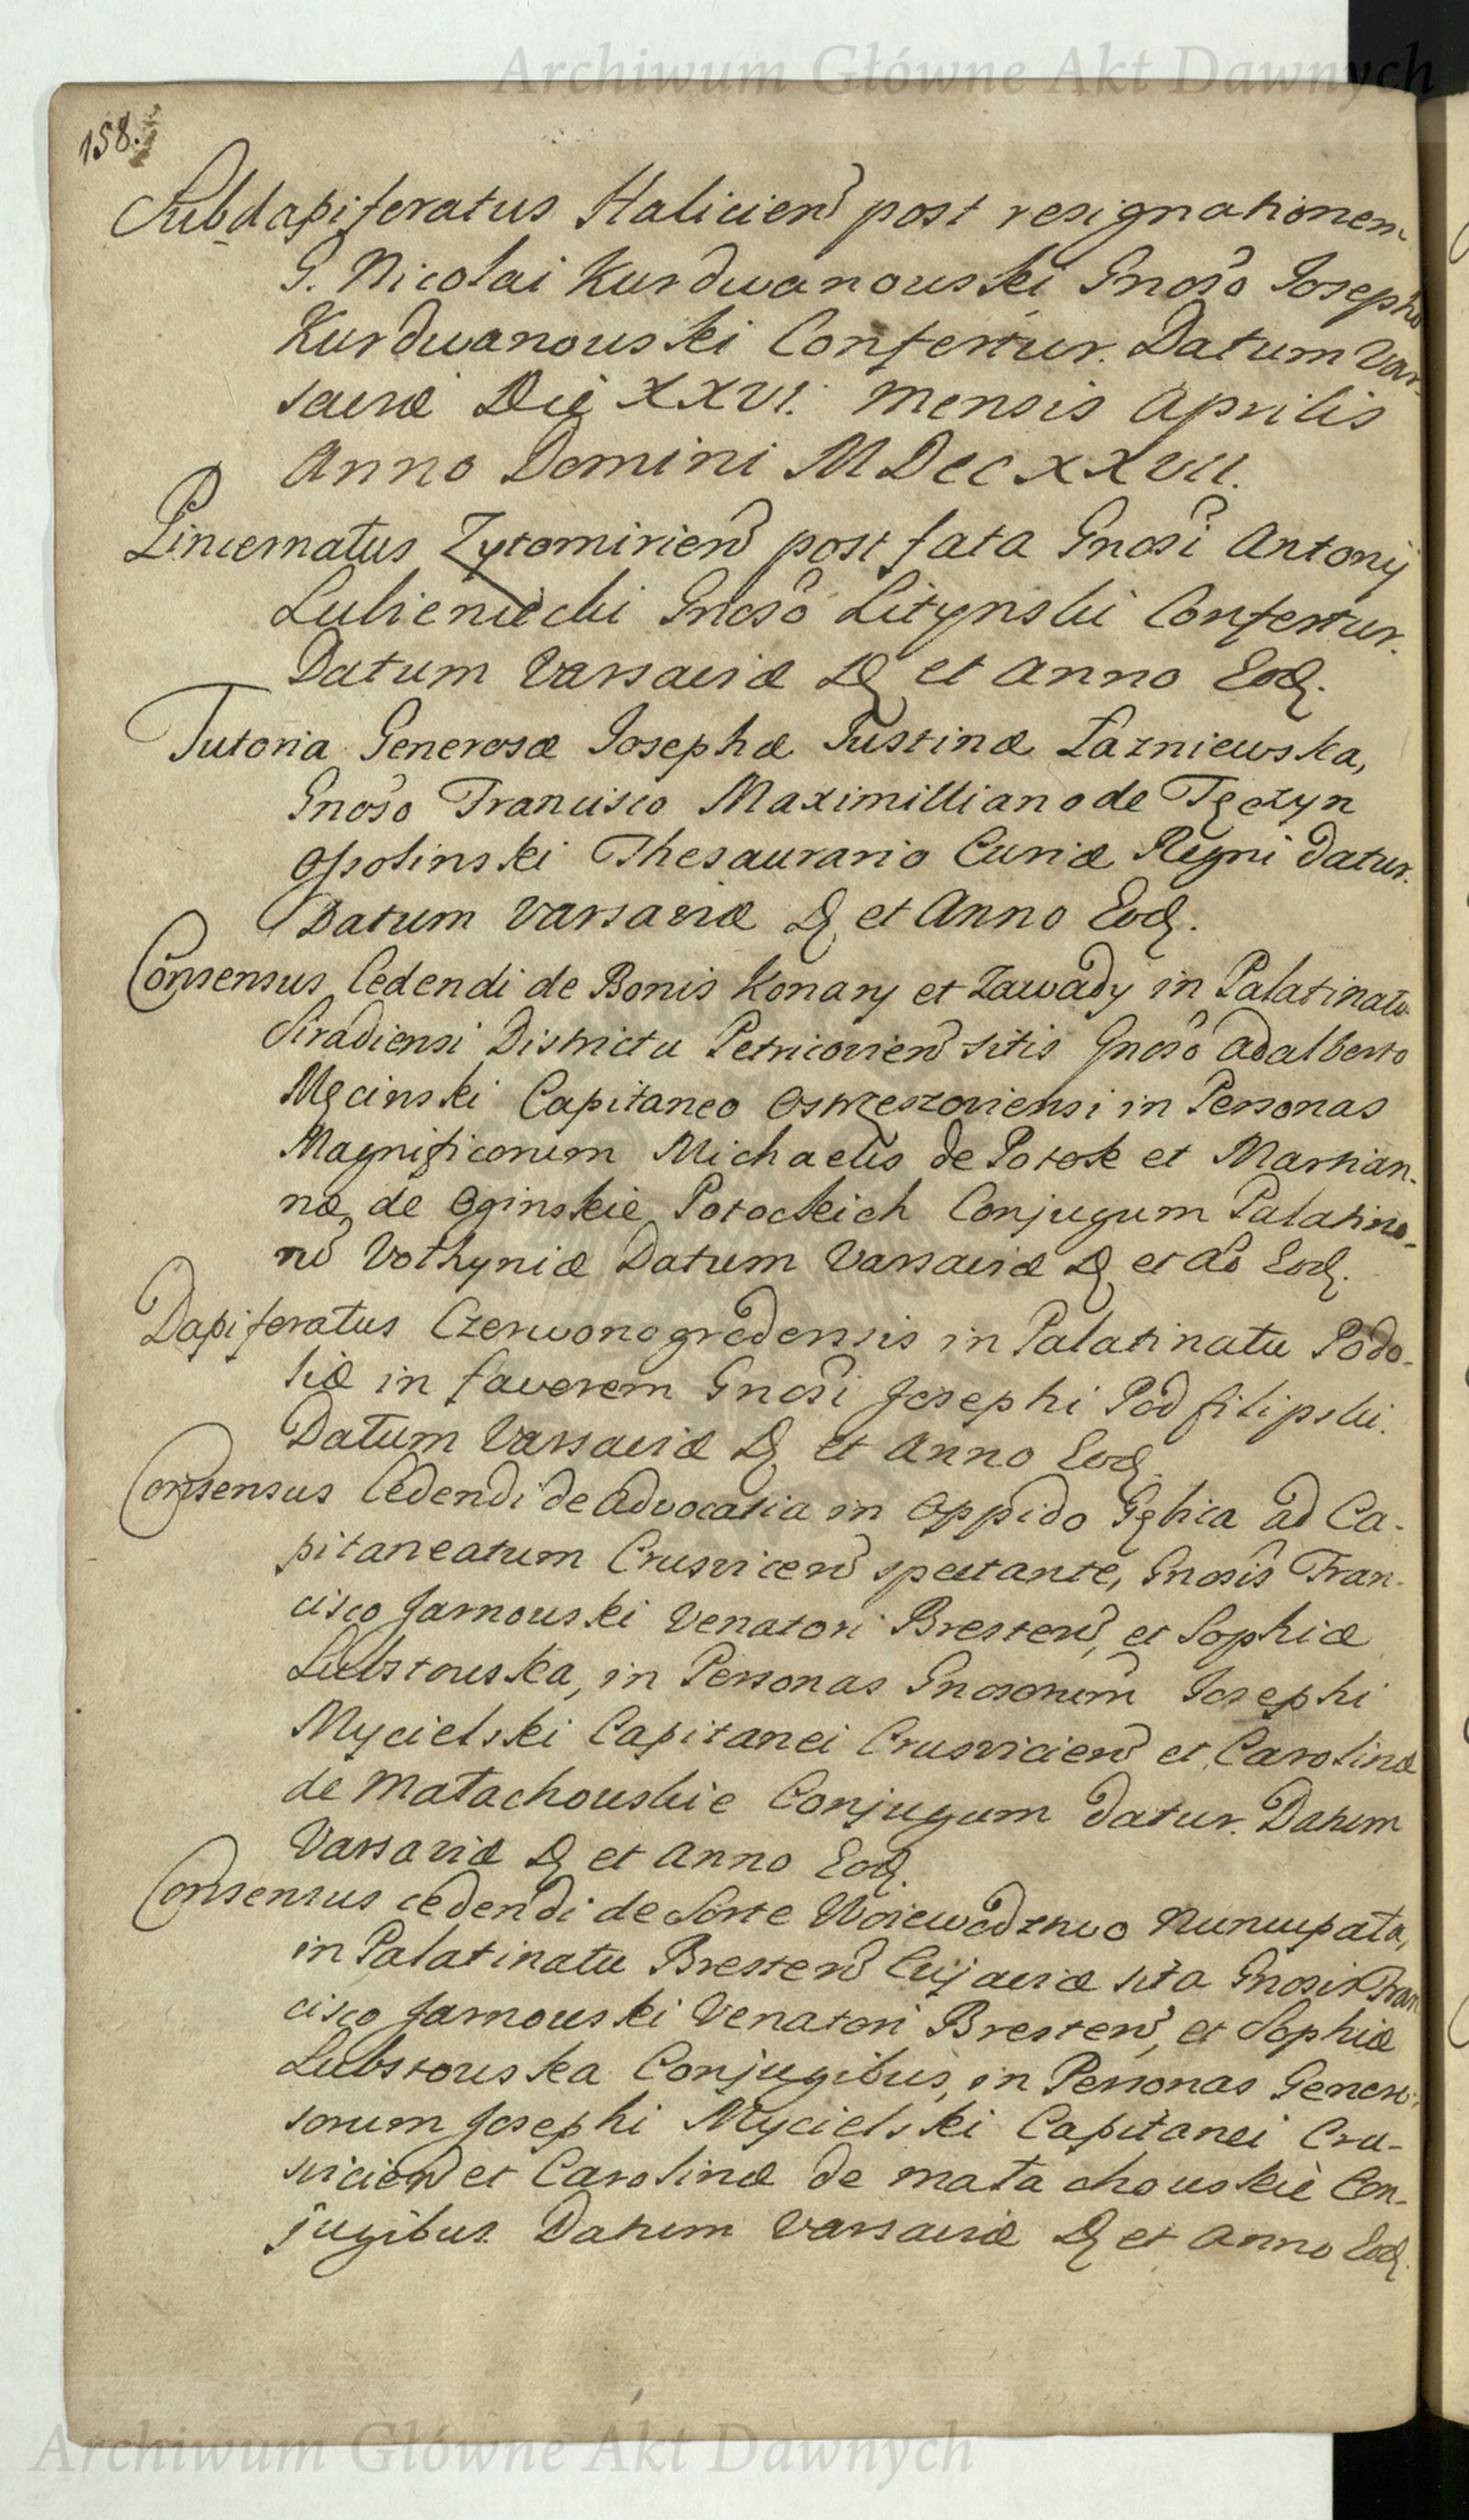 Archiwum Główne Akt Dawnych
158.
Subdapiferatus Halicien̄ post resignationem
G. Nicolai Kurdwanouski Gnoso Josepho
Kurdwanouski Confertur. Datum Var-
saviæ Die XXVI. mensis Aprilis
Anno Domini MDCCXXVII.
Pincernatus Zytomirien̄ post fata Gnosi Antonij
Lubieniecki Gnoso Litynski Confertur.
Datum Varsaviæ D et Anno Eod.
Tutoria Generosæ Josephæ Justinæ Łazniewska,
Gnoso Francisco Maximilliano de Tęczyn
Ossolinski Thesaurario Curiæ Regni datur.
Datum Varsaviæ D et Anno Eod.
Consensus Cedendi de Bonis Konary et Zawady in Palatinatu
Siradiensi Districtu Petricovien̄ sitis Gnoso Adalberto
Męcinski Capitaneo Ostrzeszoviensi in Personas
Magnificorum Michaelis de Potok et Marian-
næ de Oginskie Potockich Conjugum Palatino-
rū Volhyniæ Datum Varsaviæ D et Ao Eod.
Dapiferatus Czerwonogrodensis in Palatinatu Podo-
liæ in favorem Gnosi Josephi Podfilipski.
Datum Varsaviæ D et Anno Eod.
Consensus Cedendi de Advocatia in Oppido Gębica ad Ca-
pitaneatum Crusvicen̄ spectante, Gnosis Fran-
cisco Jarnouski Venatori Bresten̄, et Sophiæ
Lubstouska, in Personas Gnosorum Josephi
Mycielski Capitanei Crusvicien̄ et Carolinæ
de Małachouskie Conjugum datur. Datum
Varsaviæ D et Anno Eod.
Consensus cedendi de Sorte Woiewodztwo Nuncupata,
in Palatinatu Bresten̄ Cujaviæ sita Gnosis Fran
cisco Jarnouski Venatori Bresten̄, et Sophiæ
Lubstouska Conjugibus, in Personas Genero-
sorum Josephi Mycielski Capitanei Cru-
svicien̄ et Carolinæ de Małachouskie Con-
jugibus. Datum Varsaviæ D et Anno Eod.
Archiwum Główne Akt Dawnych